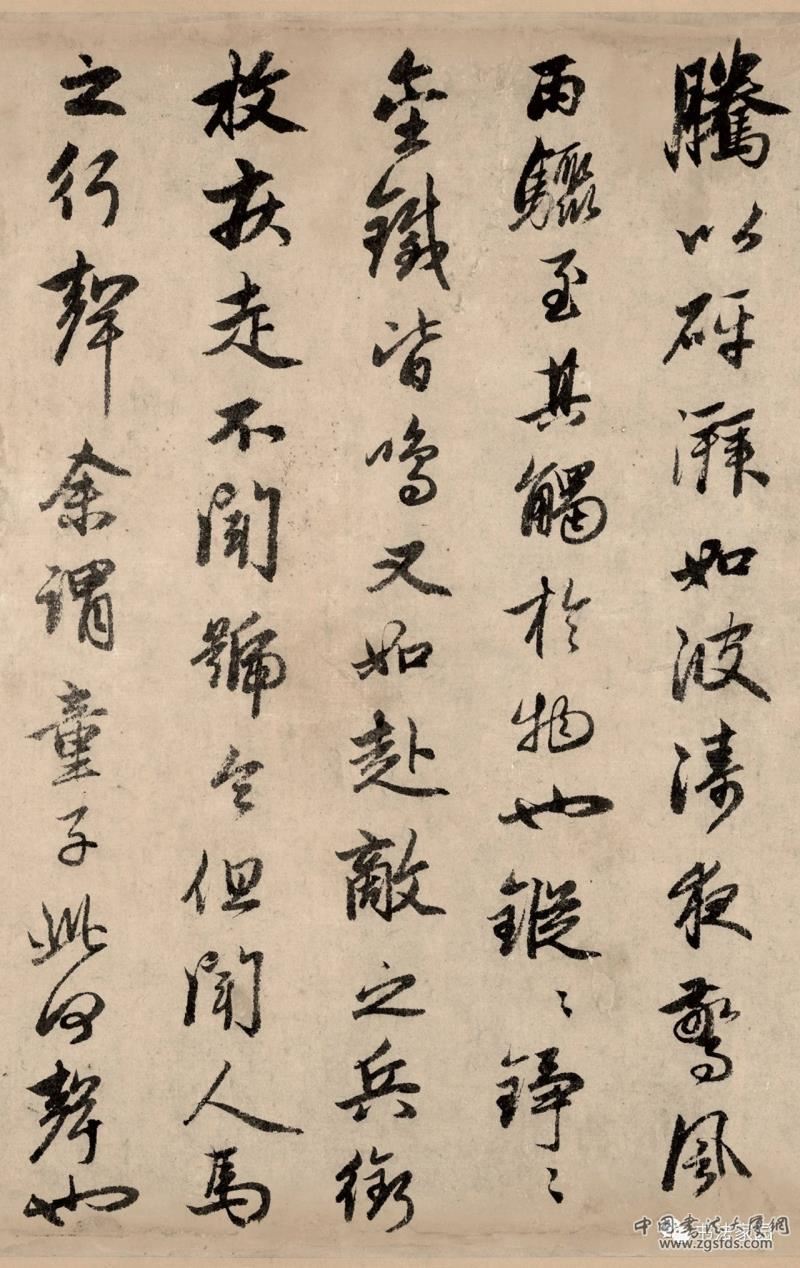 騰以砰湃如波濤夜驚風
雨驟至其觸於物也鏦〻錚〻
金鐵皆鳴又如赴敵之兵銜
枚疾走不聞號令但聞人馬
之行聲余謂童子此何聲也
中国書法大厦網
www.zgsfds.com